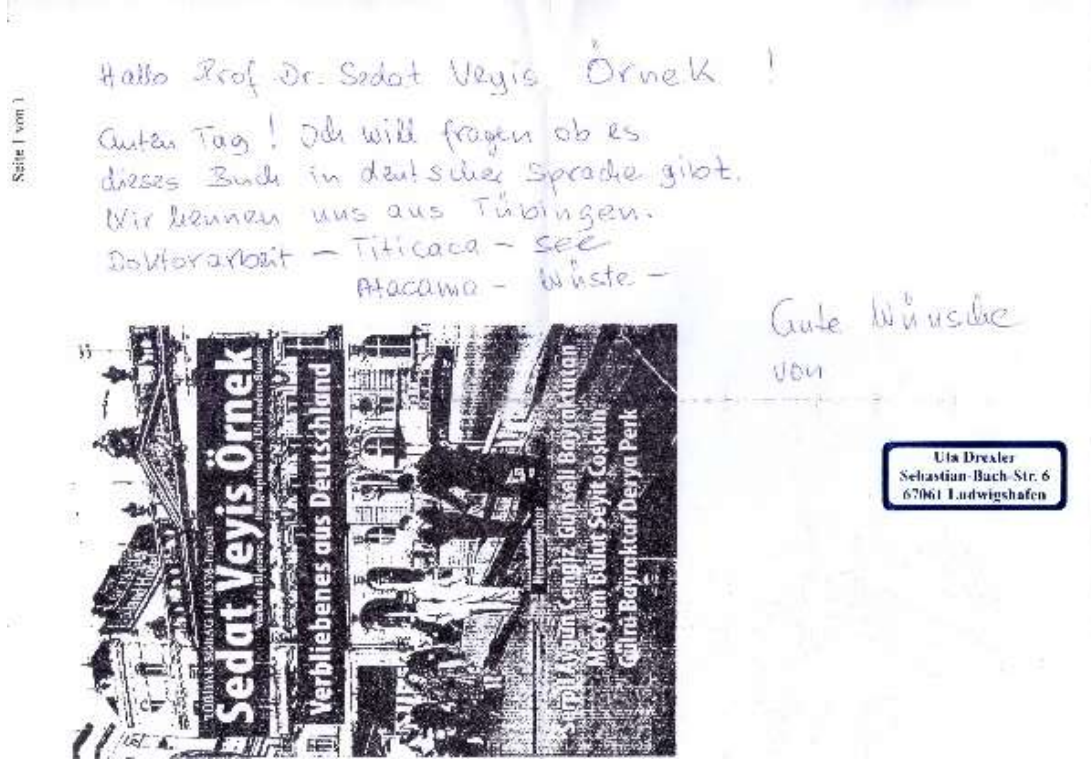 Seite 1 von 1
Hallo Prof Dr. Sedat Veyis Örnek !
Guten Tag ! Ich will fragen ob es
dieses Buch in deutscher Sprache gibt.
Wir kennen uns aus Tübingen.
Doktorarbeit – Titicaca – see
Atacama – Wüste –
Gute Wünsche
von
Uta Drexler
Sebastian-Bach-Str. 6
67061 Ludwigshafen
Sedat Veyis Örnek
Verbliebenes aus Deutschland
Serpil Aygün Cengiz Günseli Bayraktutan
Meryem Bulut Seyit Coşkun
Gülna Bayraktar Derya Perk